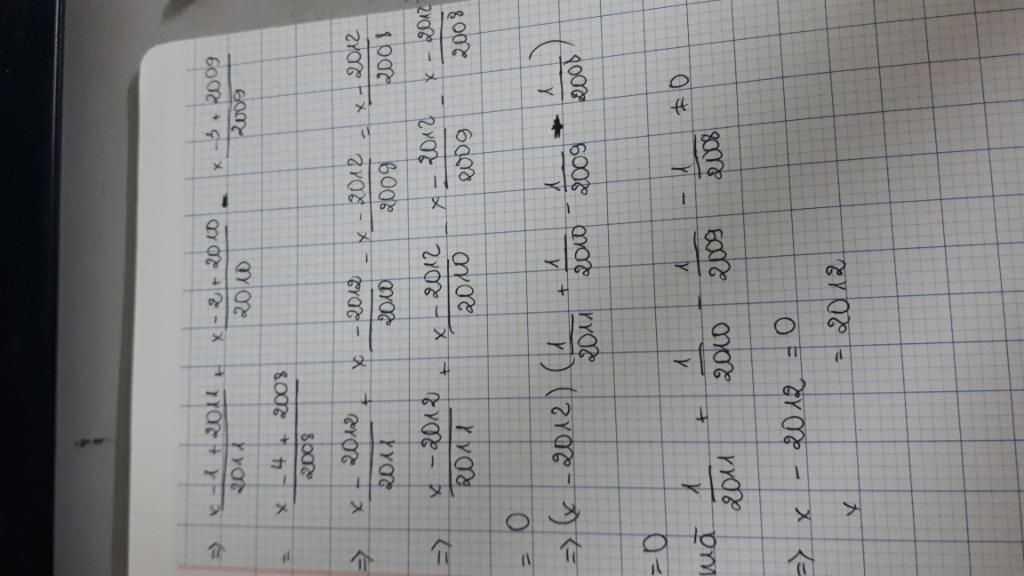 => x - 1 + 2011 / 2011 + x - 2 + 2010 / 2010 - x - 3 + 2009 / 2009
= x - 4 + 2008 / 2008
=> x - 2012 / 2011 + x - 2012 / 2010 - x - 2012 / 2009 = x - 2012 / 2008
=> x - 2012 / 2011 + x - 2012 / 2010 - x - 2012 / 2009 - x - 2012 / 2008
= 0
=> (x - 2012) (1 / 2011 + 1 / 2010 - 1 / 2009 - 1 / 2008)
= 0
mà 1 / 2011 + 1 / 2010 - 1 / 2009 - 1 / 2008 ≠ 0
=> x - 2012 = 0
x = 2012